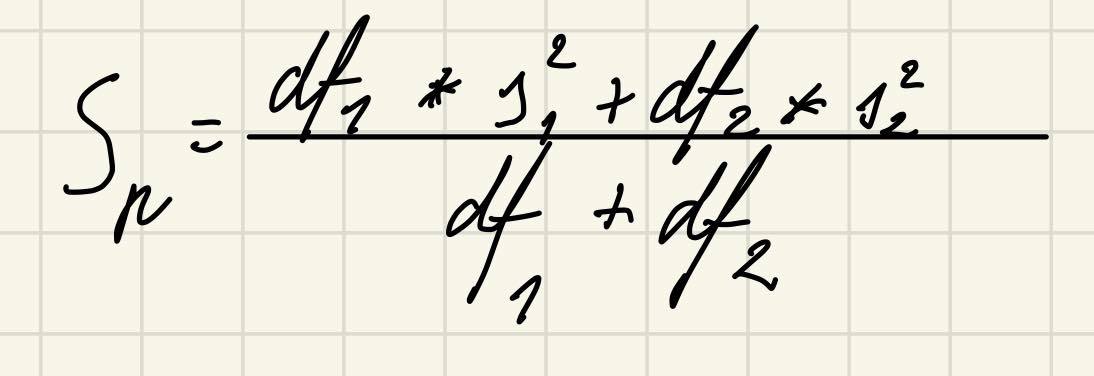 Sₚ = (df₁ * s₁² + df₂ * s₂²) / (df₁ + df₂)